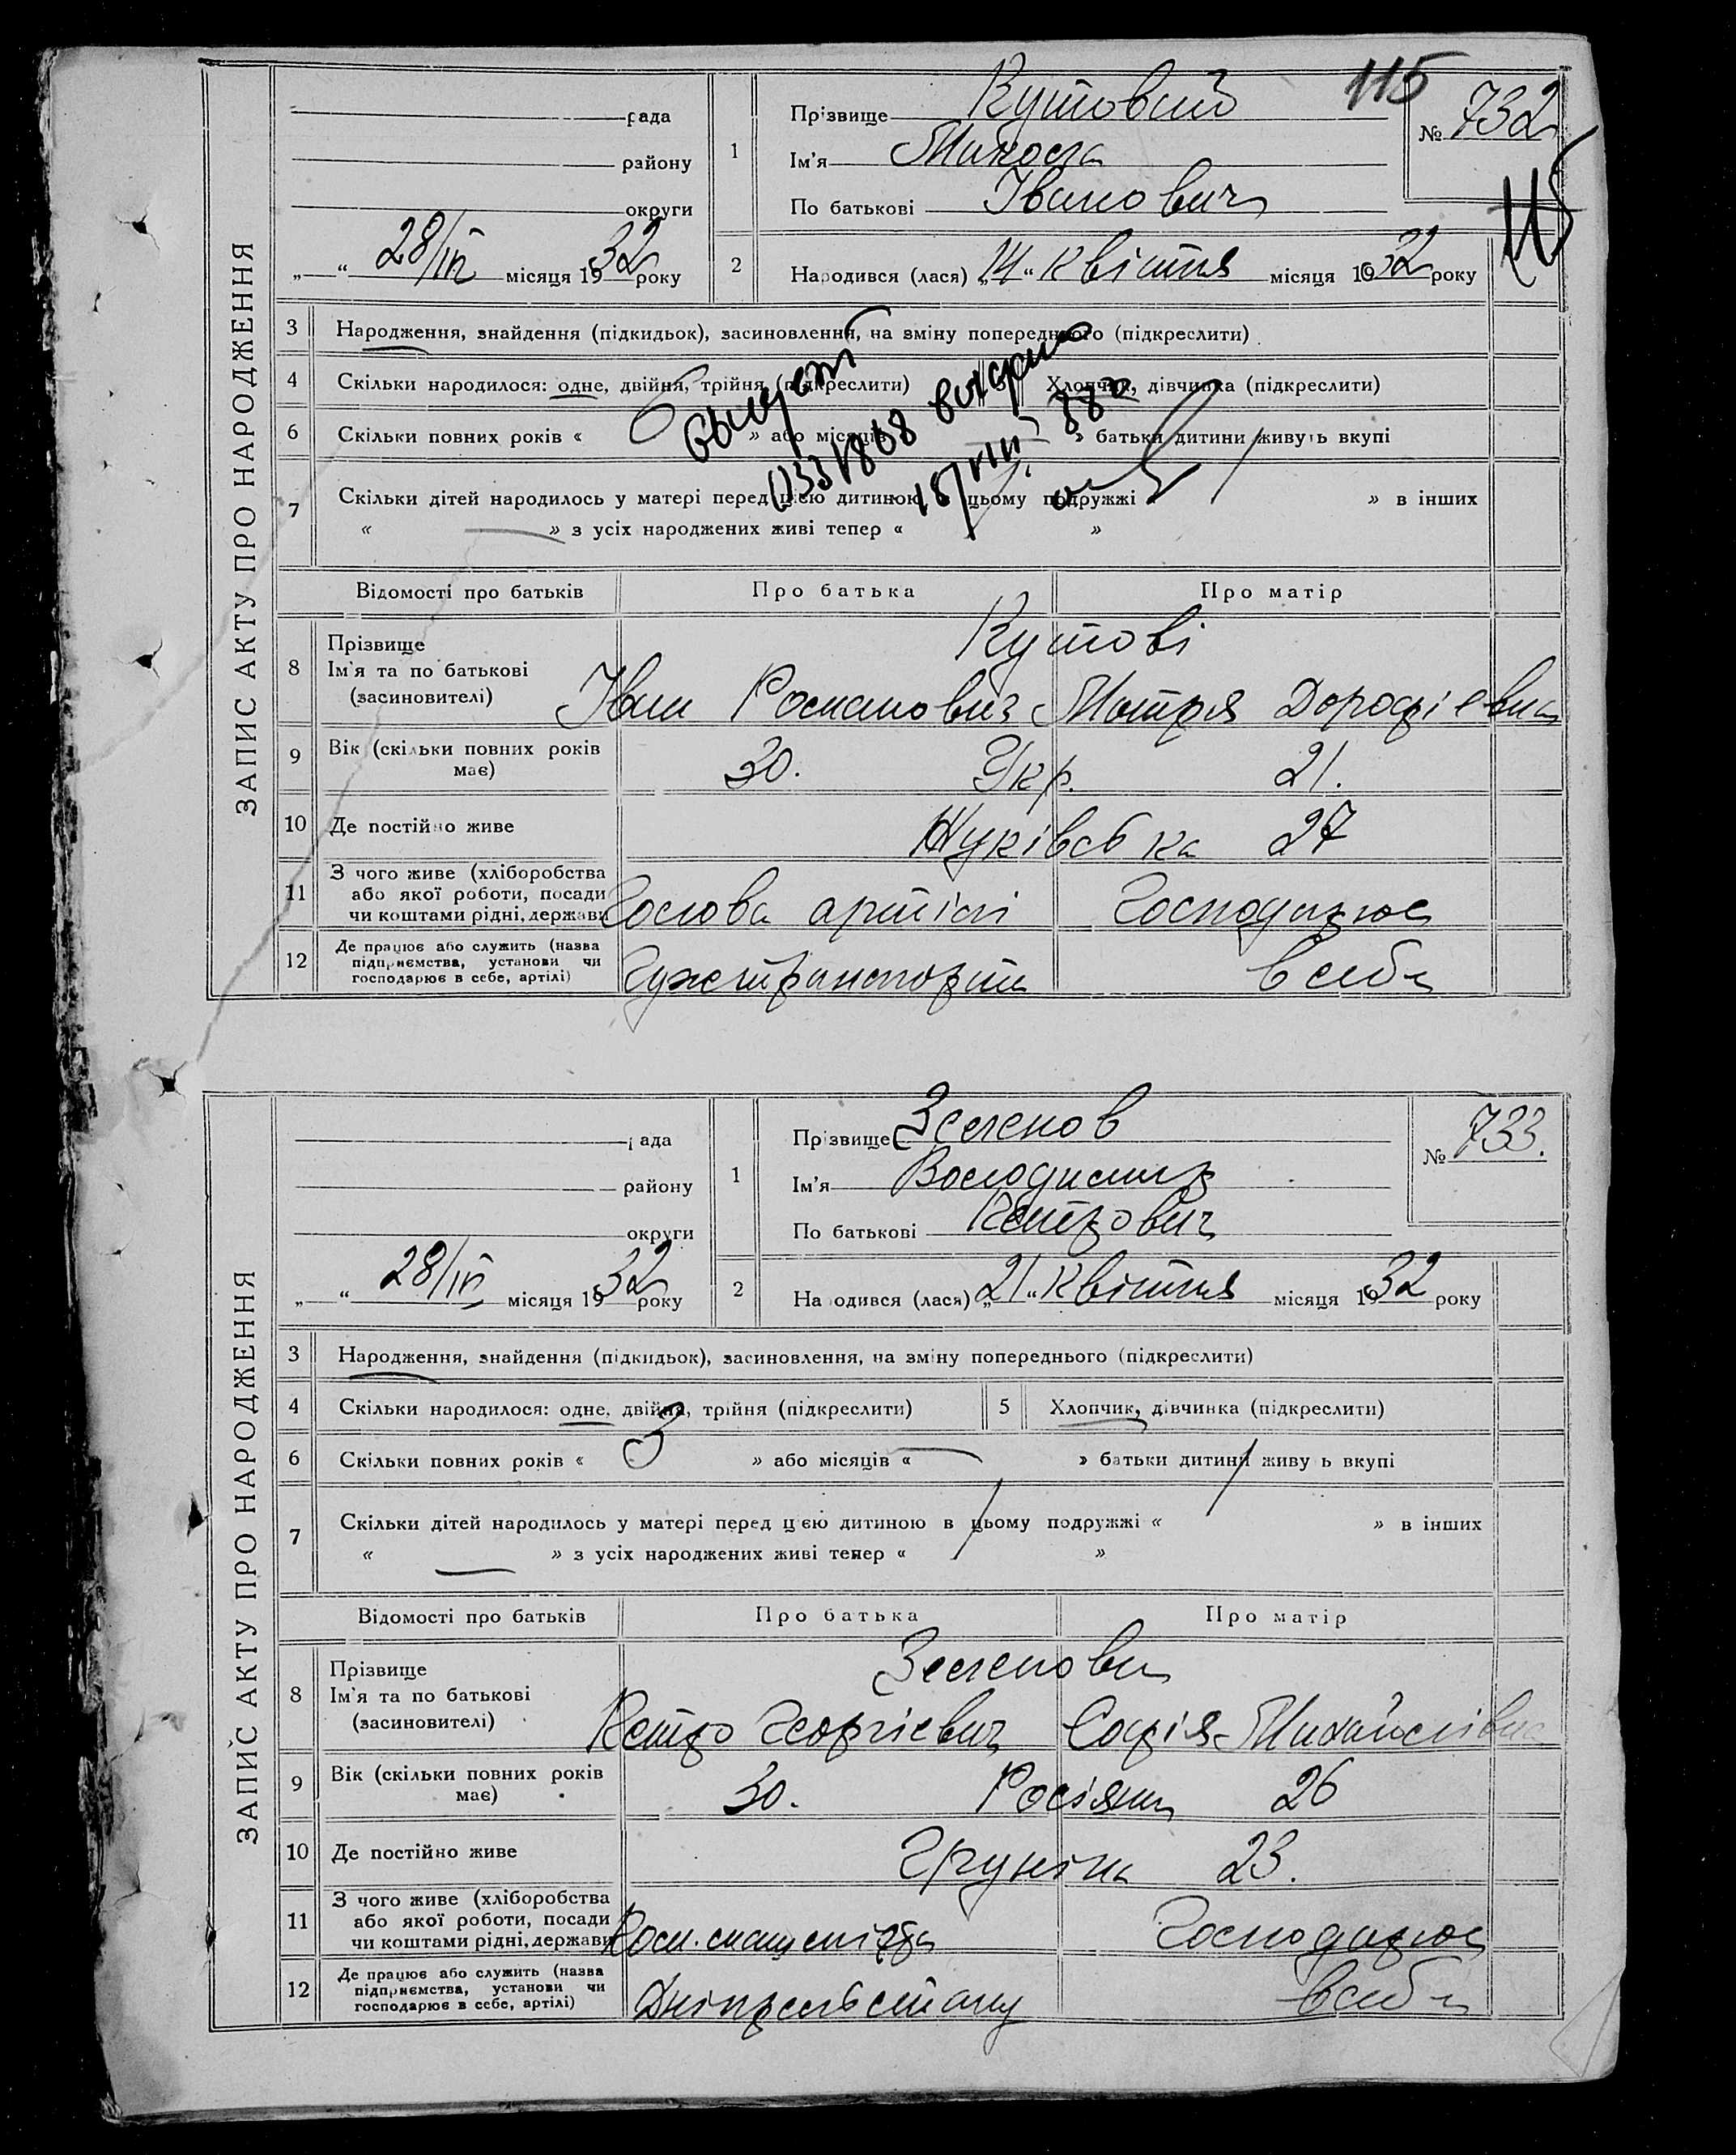 115
ЗАПИС АКТУ ПРО НАРОДЖЕННЯ
рада
району
округи
„ “ 28/IV місяця 1932 року
1
Прізвище Кутовий
Ім'я Микола
По батькові Іванович
№ 732
115
2
Народився (лася) „14“ квітня місяця 1932 року
3 Народження, знайдення (підкидьок), засиновлення, на зміну попереднього (підкреслити)
4 Скільки народилося: одне, двійня, трійня (підкреслити) Хлопчик, дівчинка (підкреслити)
6 Скільки повних років « » або місяців » батьки дитини живуть вкупі
7 Скільки дітей народилось у матері перед цією дитиною цьому подружжі » в інших
« » з усіх народжених живі тепер « »
Відомості про батьків Про батька Про матір
8 Прізвище
Ім'я та по батькові
(засиновителі)
Кутові
Іван Романович Мотря Дорофієвна
9 Вік (скільки повних років має) 30. Укр. 21.
10 Де постійно живе 27
11 З чого живе (хліборобства
або якої роботи, посади
чи коштами рідні, держави
Голова артілі Господарює
12 Де працює або служить (назва
підприємства, установи чи
господарює в себе, артілі)
Гужтранспорт в себе
ЗАПИС АКТУ ПРО НАРОДЖЕННЯ
рада
району
округи
„ “ 28/IV місяця 1932 року
1
Прізвище Зеленов
Ім'я Володимир
По батькові Петрович
№ 733.
2
Народився (лася) „21“ квітня місяця 1932 року
3 Народження, знайдення (підкидьок), засиновлення, на зміну попереднього (підкреслити)
4 Скільки народилося: одне, двійня, трійня (підкреслити) 5 Хлопчик, дівчинка (підкреслити)
6 Скільки повних років « 3 » або місяців « — » батьки дитини живуть вкупі
7 Скільки дітей народилось у матері перед цією дитиною в цьому подружжі « » в інших
« — » з усіх народжених живі тепер « »
Відомості про батьків Про батька Про матір
8 Прізвище
Ім'я та по батькові
(засиновителі)
Зеленови
Петро Георгієвич Софія Михайлівна
9 Вік (скільки повних років має) 30. Росіяни 26
10 Де постійно живе 23.
11 З чого живе (хліборобства
або якої роботи, посади
чи коштами рідні, держави
Пом. Господарює
12 Де працює або служить (назва
підприємства, установи чи
господарює в себе, артілі)
Дніпрельстану в себе